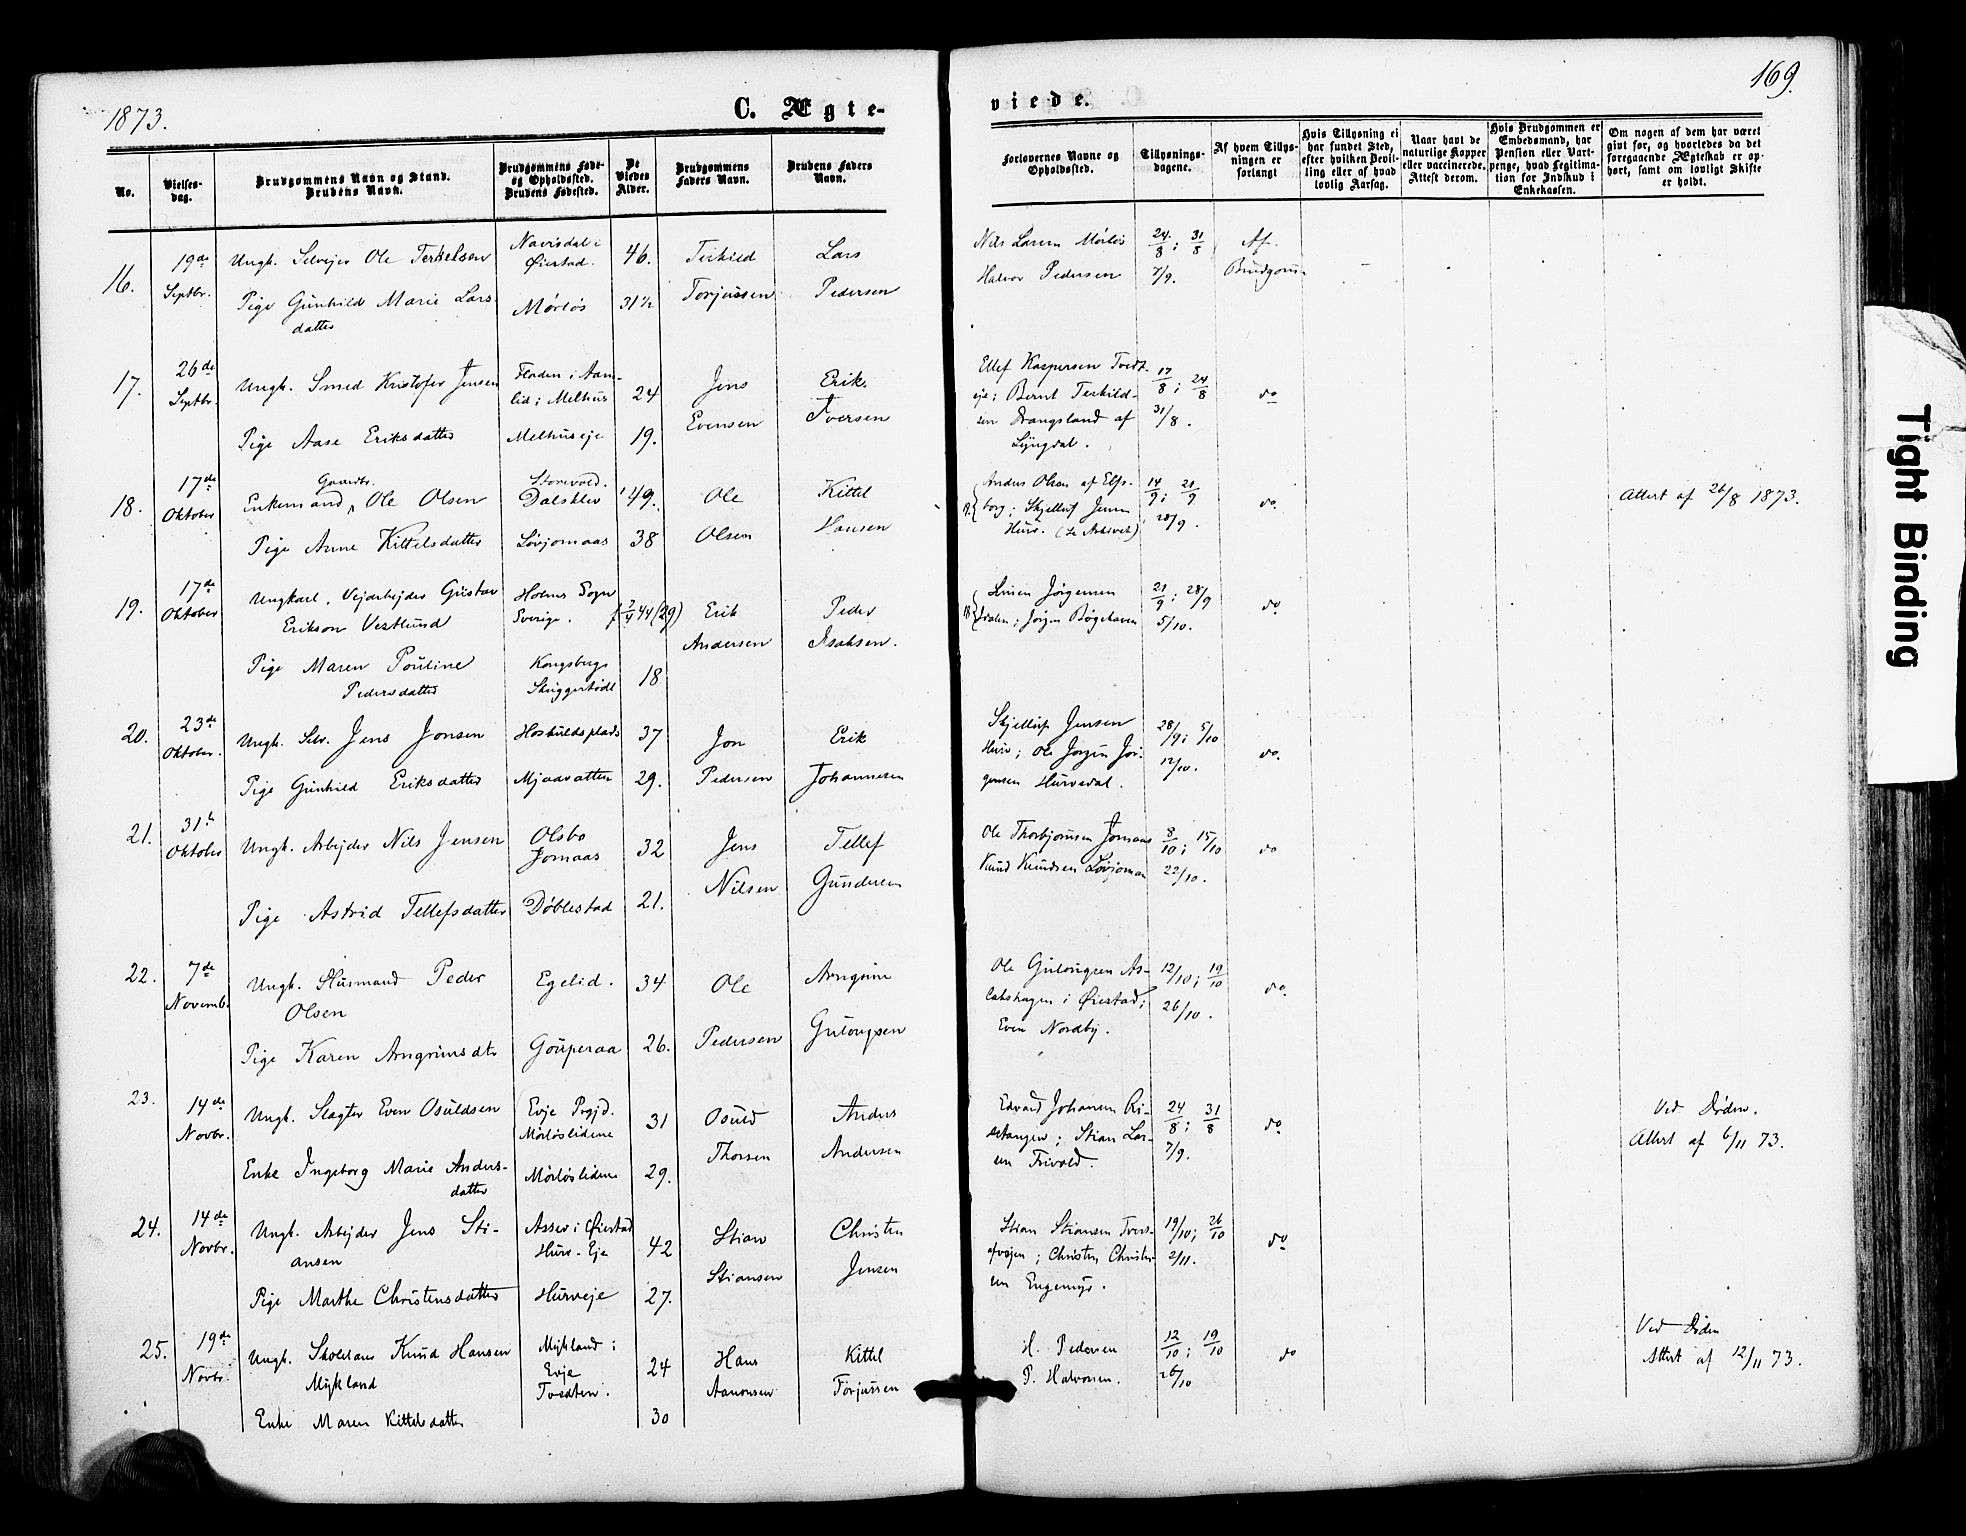 1873.
C. Ægte-
No.
Vielses-
dag.
Brudgommens Navn og Stand.
Brudens Navn.
Brudgommens Føde-
og Opholdssted.
Brudens Fødested.
De
Viedes
Alder.
Brudgommens
Faders Navn.
Brudens Faders
Navn.
16.
19de
Septbr.
Ungk. Selvejer Ole Terkelsen
Øiestad.
46.
Terkild
Torjussen
Lars
Pedersen
Pige Gunhild Marie Lars
datter
Mørløs
31½
17.
26de
Septbr.
Ungk. Smed Kristofer Jensen
Fladen i Aam-
lid; Melhus
24
Jens
Evensen
Erik
Iversen
Pige Aase Eriksdatter
Melhuseje
19.
18.
17de
Oktober
Gaardbr.
Enkemand, Ole Olsen
Storevold.
Dalsklev
49.
Ole
Olsen
Kittel
Hansen
Pige Anne Kittelsdatter
Løvjomaas
38
19.
17de
Oktober
Ungkarl, Vejarbejder Gustav
Erikson Vestlund
Holms Sogn
Sverige.
f 2/4 44 (29)
Erik
Andersen
Peder
Isaksen.
Pige Maren Pouline
Pedersdatter
Kongsberg
18
20.
23de
Oktober.
Ungk. Selv. Jens Jonsen
Hoskuldsplads
37
Jon
Pedersen
Erik
Johannesen
Pige Gunhild Eriksdatter
Mjaavatten
29.
21.
31te
Oktober
Ungk. Arbejder Nils Jensen
Olsbo
Jomaas
32
Jens
Nilsen
Tellef
Gundersen
Pige Astrid Tellefsdatter
Døblestad
21.
22.
7de
Novemb.
Ungk. Husmand Peder
Olsen
Egelid.
34
Ole
Pedersen
Arngrim
Gulougsen
Pige Karen Arngrimsdt.
Gouperaa
26.
23.
14de
Novbr.
Ungk. Slagter Even Osuldsen
Evje Prgjd.
Mørløslidene
31
Osuld
Thorsen
Anders
Andersen
Enke Ingeborg Marie Anders-
datter
Mørløslidene
29.
24.
14de
Novbr.
Ungk. Arbejder Jens Sti-
ansen
Asser i Øiestad
Hurv-Eje
42
Stian
Stiansen
Christen
Jensen
Pige Marthe Christensdatter
Hurveje
27.
25.
19de
Novbr.
Ungk. Skolelærer Knud Hansen
Mykland
Mykland i
Evje
Tvedten.
24
Hans
Aanonsen
Kittel
Torjussen
Enke Maren Kittelsdatter
30
169.
viede.
Forlovernes Navne og
Opholdssted.
Tillysnings-
dagene.
Af hvem Tillys-
ningen er
forlangt
Hvis Tillysning ei
har fundet Sted,
efter hvilken Bevil-
ling eller af hvad
lovlig Aarsag.
Naar havt de
naturlige Kopper
eller vaccinerede.
Attest derom.
Hvis Brudgommen er
Embedsmand, har
Pension eller Vart-
penge, hvad Legitima-
tion for Indskud i
Enkekassen.
Om nogen af dem har været
gift før, og hvorledes da det
foregaaende Ægteskab er op-
hørt, samt om lovligt Skifte
er holdt.
Nils Larsen Mørløs
Halvor Pedersen
24/8; 31/8
7/9.
Af
Brudgom
Ellef Kaspersen Tvedt-
eje; Bernt Terkild-
sen Drangsland af
Lyngdal.
17/8; 24/8
31/8.
do
Anders Olsen af Elfs-
borg; Skjellulf Jensen
Hurv. (se Arkivet)
14/9; 21/9
28/9.
do
Attest af 26/8 1873.
Jørgensen
Dalen; Jørgen Bøgehaven
21/9; 28/9
5/10.
do
Skjellulf Jensen
Hurv; Ole Jørgen Jør-
gensen Hurvedal.
28/9; 5/10
12/10.
do.
Ole Thorbjørnsen Jomaas
Knud Knudsen Løvjomaas
8/10; 15/10
22/10.
do
Ole Gulougsen As-
lakshagen i Øiestad;
Even Nordby.
12/10; 19/10
26/10.
do.
Edvard Johansen Ri-
setangen; Stian Lar-
sen Trivold.
24/8; 31/8
7/9.
do
Ved Døden.
Attest af 6/11 73.
Stian Stiansen
; Christen Christen-
sen Engemyr.
19/10; 26/10
2/11.
do
H. Pedersen
P. Halvorsen.
12/10; 19/10
26/10
do
Ved Døden
Attest af 12/11 73.
Tight Binding